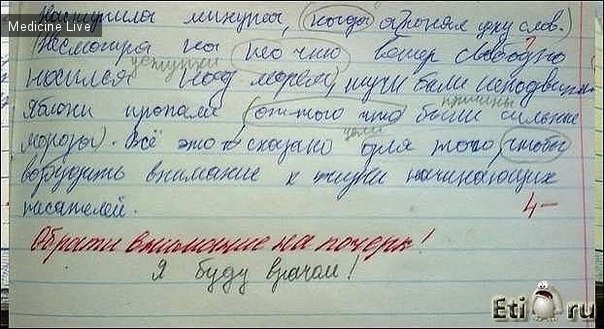 Medicine Live
Наступила минута, (когда я понял цену слов.)
Несмотря на то что ветер свободно
уступки
носился над морем, тучи были неподвижны.
причины
Яблоки пропали (от того что были сильные
цели
морозы). Всё это сказано для того, чтобы
возбудить внимание к жизни начинающих
писателей.
4-
Обрати внимание на почерк!
Я буду врачом!
Eti ru